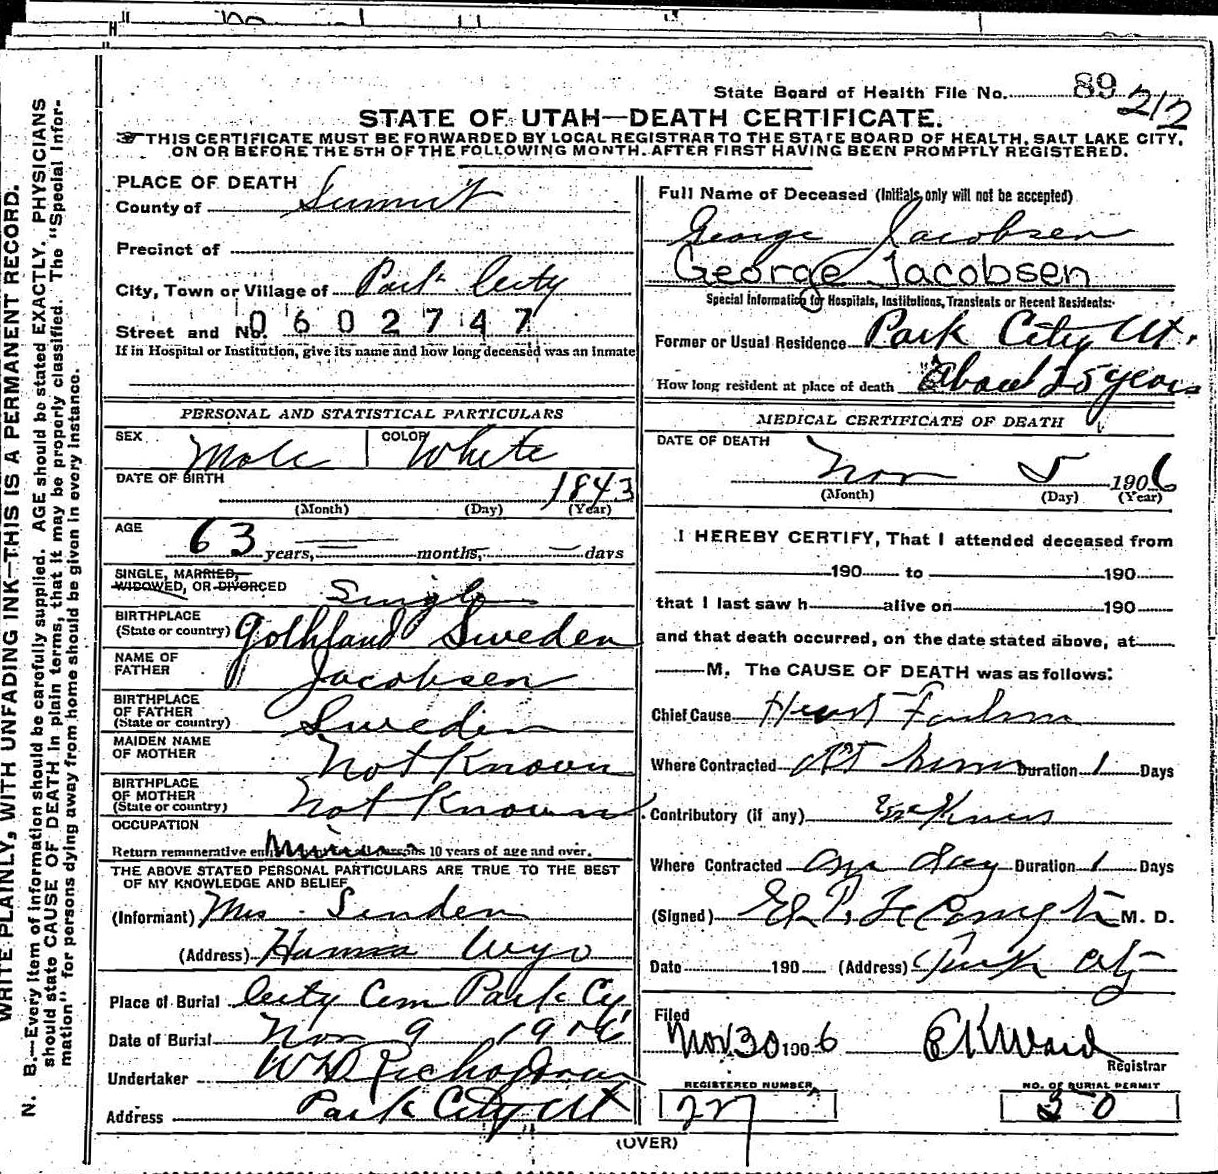 State Board of Health File No. 89 212
STATE OF UTAH—DEATH CERTIFICATE.
☞THIS CERTIFICATE MUST BE FORWARDED BY LOCAL REGISTRAR TO THE STATE BOARD OF HEALTH, SALT LAKE CITY,
ON OR BEFORE THE 5TH OF THE FOLLOWING MONTH. AFTER FIRST HAVING BEEN PROMPTLY REGISTERED.
WRITE PLAINLY, WITH UNFADING INK—THIS IS A PERMANENT RECORD.
N. B.—Every item of information should be carefully supplied. AGE should be stated EXACTLY. PHYSICIANS
should state CAUSE OF DEATH in plain terms, that it may be properly classified. The "Special Infor-
mation" for persons dying away from home should be given in every instance.
PLACE OF DEATH
County of Summit
Precinct of
City, Town or Village of Park City
Street and No. 0602747
If in Hospital or Institution, give its name and how long deceased was an Inmate
PERSONAL AND STATISTICAL PARTICULARS
SEX Male COLOR White
DATE OF BIRTH 1843
(Month) (Day) (Year)
AGE 63 years, — months, — days
SINGLE, MARRIED,
WIDOWED, OR DIVORCED Single
BIRTHPLACE
(State or country) Gothland Sweden
NAME OF
FATHER Jacobsen
BIRTHPLACE
OF FATHER
(State or country) Sweden
MAIDEN NAME
OF MOTHER Not Known
BIRTHPLACE
OF MOTHER
(State or country) Not Known
OCCUPATION
Return remunerative 10 years of age and over.
THE ABOVE STATED PERSONAL PARTICULARS ARE TRUE TO THE BEST
OF MY KNOWLEDGE AND BELIEF
(Informant) Mrs. Linden
(Address) Hanna Wyo
Place of Burial City Cem Park Cy
Date of Burial Nov 9 1906
Undertaker W D Richardson
Address Park City Ut
Full Name of Deceased (Initials only will not be accepted)
George Jacobsen
George Jacobsen
Special Information for Hospitals, Institutions, Transients or Recent Residents:
Former or Usual Residence Park City Ut.
How long resident at place of death About 25 years
MEDICAL CERTIFICATE OF DEATH
DATE OF DEATH
Nov 5 1906
(Month) (Day) (Year)
I HEREBY CERTIFY, That I attended deceased from
190 to 190
that I last saw h alive on 190
and that death occurred, on the date stated above, at
M. The CAUSE OF DEATH was as follows:
Chief Cause Heart Failure
Where Contracted At Duration 1 Days
Contributory (if any)
Where Contracted Duration 1 Days
(Signed) M. D.
Date 190 (Address) Park City
Filed
Nov 30 1906 E K Ward
Registrar
REGISTERED NUMBER NO. OF BURIAL PERMIT
227 50
(OVER)